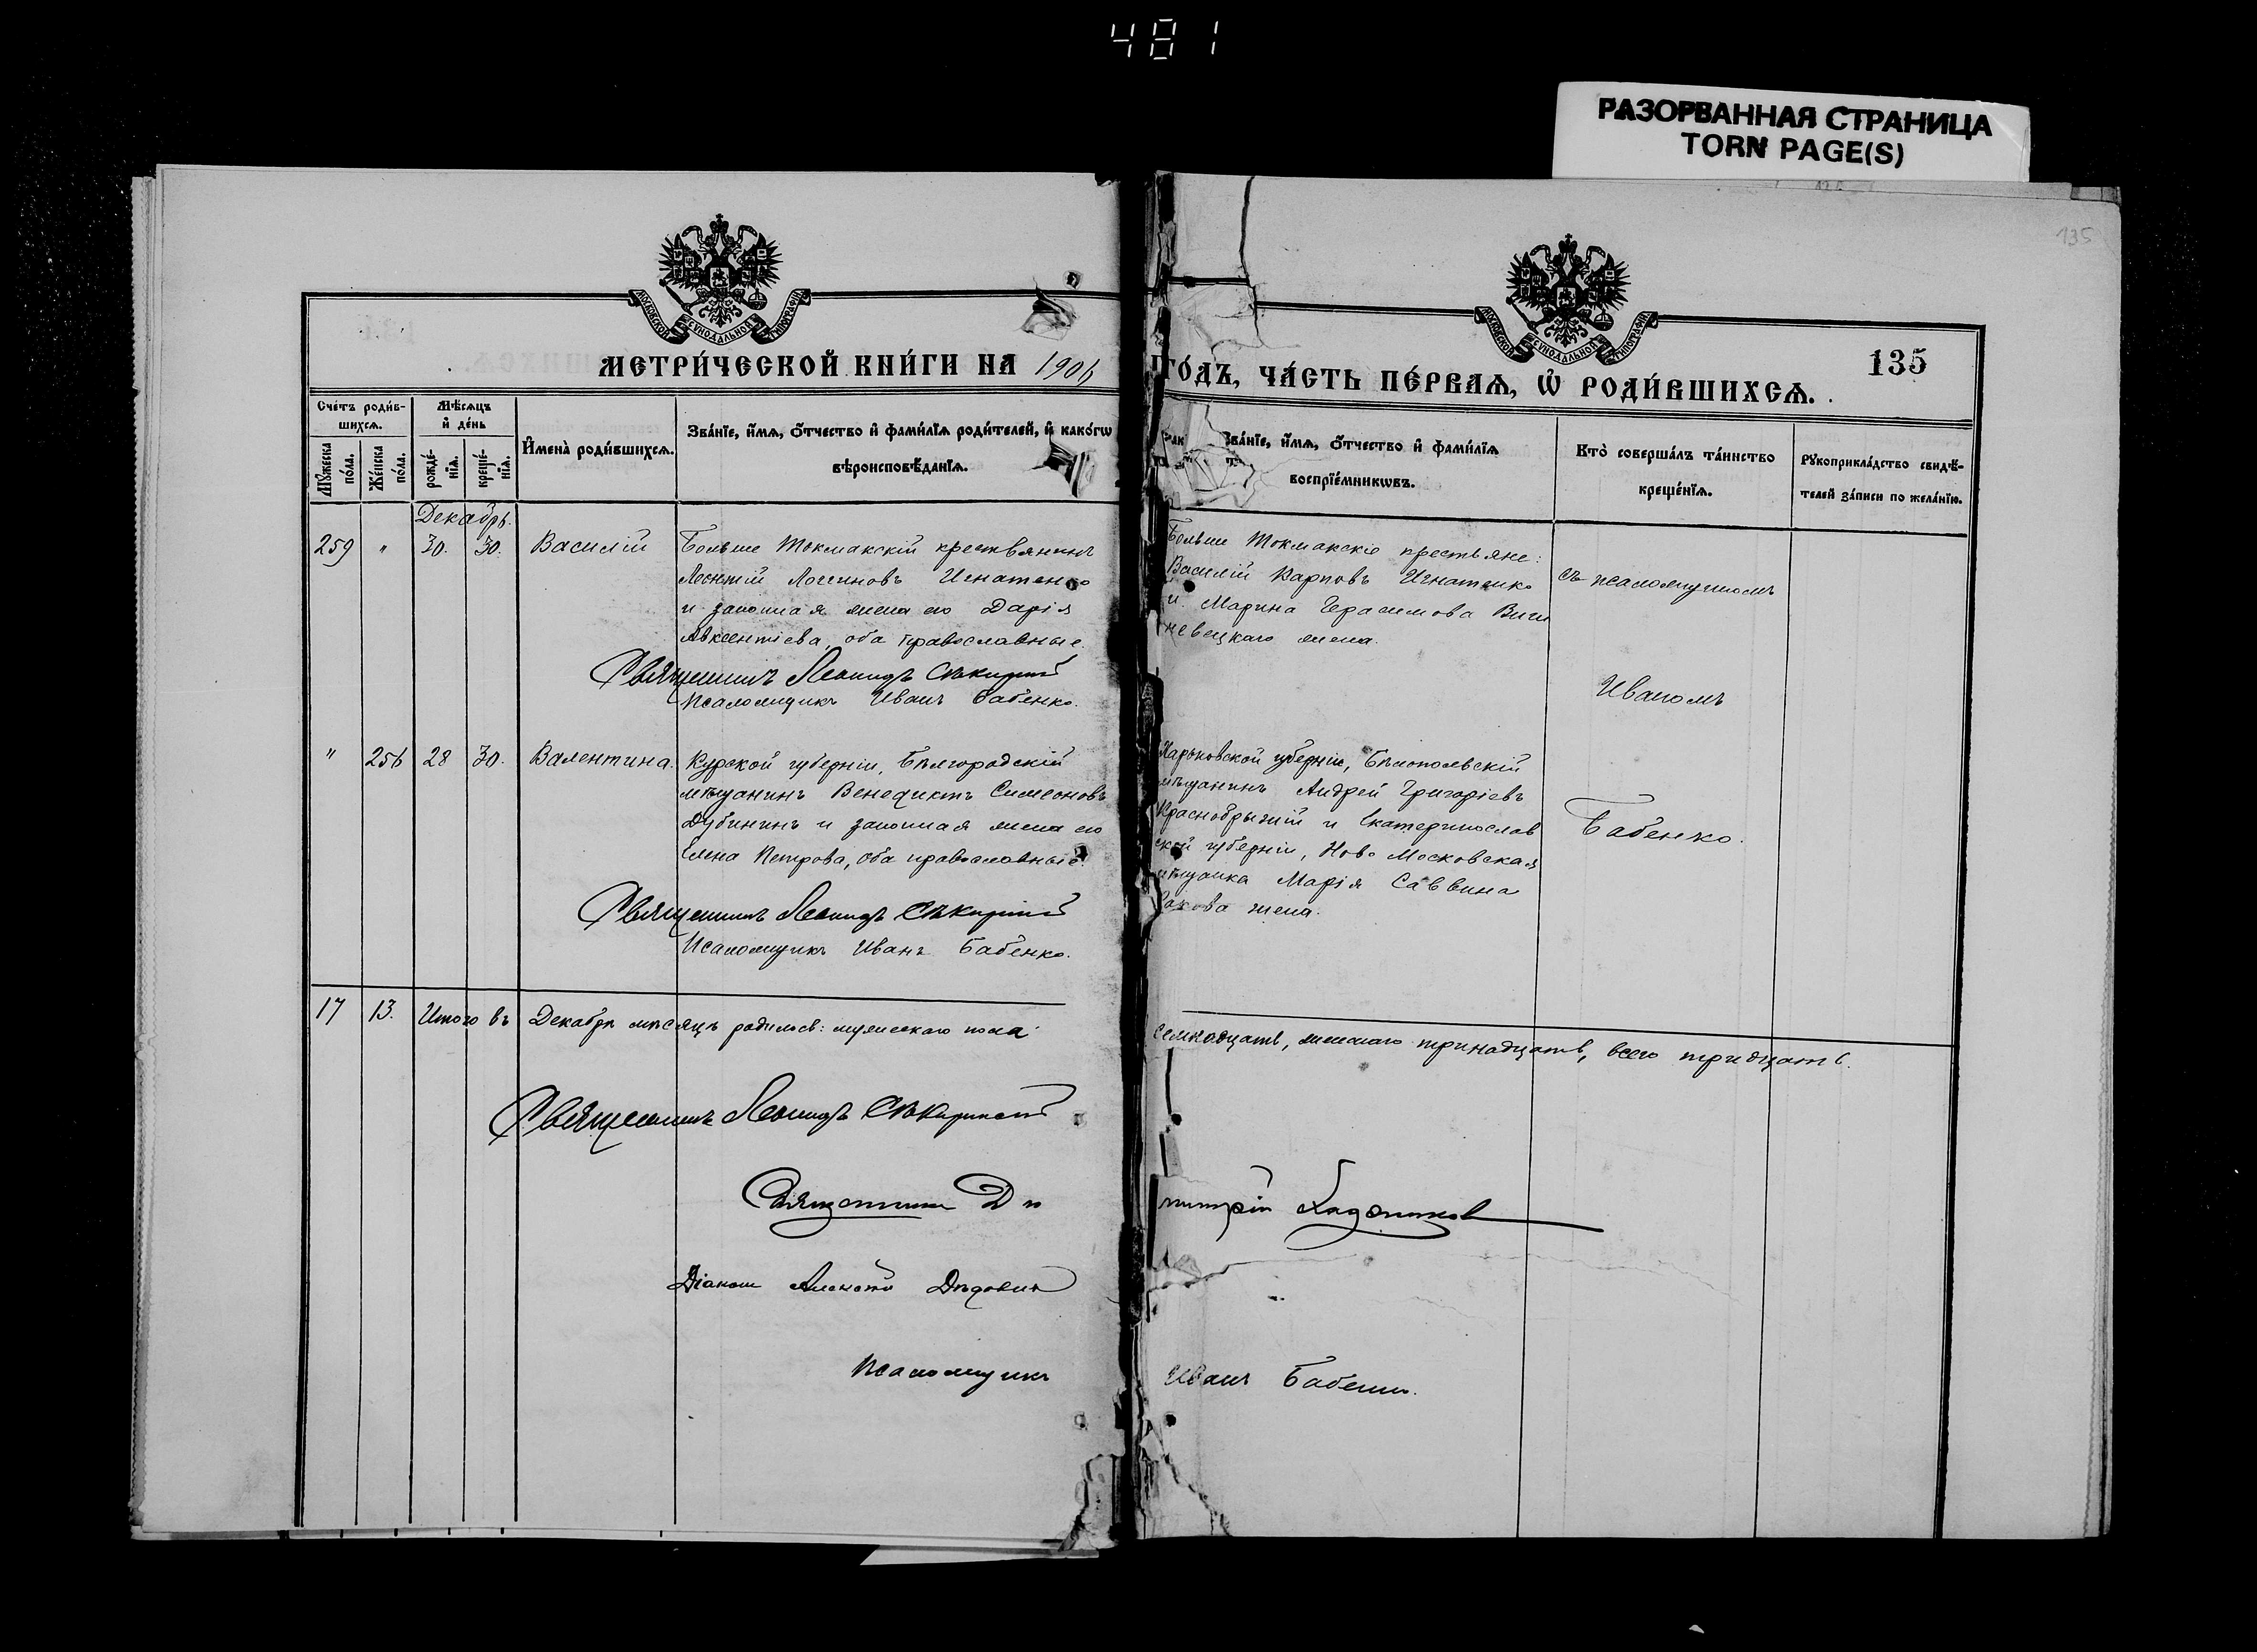 481
РАЗОРВАННАЯ СТРАНИЦА
TORN PAGE(S)
135
МОСКОВСКОЙ СѴНОДАЛЬНОЙ ТИПОГРАФІИ
МОСКОВСКОЙ СѴНОДАЛЬНОЙ ТИПОГРАФІИ
МЕТРИ́ЧЕСКОЙ КНИ́ГИ НА 1906
ГО́ДЪ, ЧА́СТЬ ПЕ́РВАѦ, Ѡ҆ РОДИ́ВШИХСѦ.
135
Сче́тъ роди́в-
шихсѧ.
Мѣ́сѧцъ
и҆ де́нь
Мꙋ́жеска
по́ла.
Же́нска
по́ла.
рожде́-
нїѧ.
креще́-
нїѧ.
И҆мена̀ роди́вшихсѧ.
Зва́нїе, и҆́мѧ, ѻ҆́тчество и҆ фами́лїѧ роди́телей, и҆ како́гѡ
вѣроисповѣ́данїѧ.
Зва́нїе, и҆́мѧ, ѻ҆́тчество и҆ фами́лїѧ
воспрїе́мникѡвъ.
Кто̀ соверша́лъ та́инство
креще́нїѧ.
Рꙋкоприкла́дство свидѣ́-
телей за́писи по жела́нїю.
Декабрь.
259 " 30. 30. Василій
Больше Токмакскій крестьянинъ
Леонтій Логиновъ Игнатенко
и законная жена его Дарія
Авксентіева, оба православные.
Священникъ Леонидъ Секирскій
Псаломщикъ Иванъ Бабенко.
Больше Токмакскіе крестьяне:
Василій Карповъ Игнатенко
и Марина Герасимова Виш
невецкаго жена.
съ псаломщикомъ
Иваномъ
Бабенко.
" 256 28 30. Валентина.
Курской губерніи, Бѣлгородскій
мѣщанинъ Венедиктъ Симеоновъ
Дубининъ и законная жена его
Елена Петрова, оба православные.
Священникъ Леонидъ Секирскій
Псаломщикъ Иванъ Бабенко.
Харьковской губерніи, Бѣлопольскій
мѣщанинъ Андрей Григоріевъ
Краснобрыжій и Екатеринослав
ской губерніи, Ново Московская
мѣщанка Марія Саввина
жена.
17 13. Итого въ Декабрѣ мѣсяцѣ родилось: мужескаго пола
семнадцать, женскаго тринадцать, всего тридцать.
Священникъ Леонидъ Секирскій
Священникъ Дмитрій
Діаконъ Алексѣй
Псаломщикъ Иванъ Бабенко.